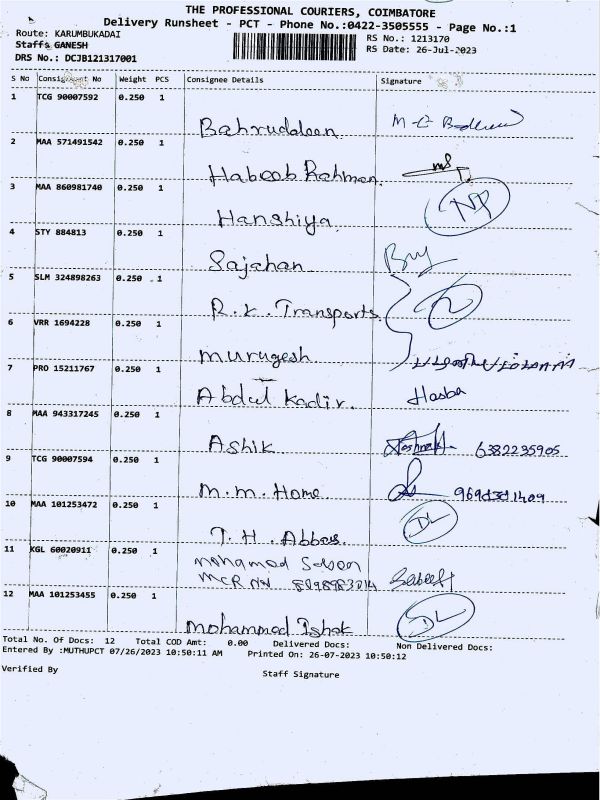 THE PROFESSIONAL COURIERS, COIMBATORE
Delivery Runsheet - PCT - Phone No.:0422-3505555 - Page No.:1
Route: KARUMBUKADAI
RS No.: 1213170
Staff: GANESH
RS Date: 26-Jul-2023
DRS No.: DCJB121317001
S No Consignment No Weight PCS Consignee Details Signature
1 TCG 90007592 0.250 1
Bahruddeen
2 MAA 571491542 0.250 1
Habeeb Rahman.
3 MAA 860981740 0.250 1
Hanshiya. NP
4 STY 884813 0.250 1
Sajahan
5 SLM 324898263 0.250 1
R.K. Transports
6 VRR 1694228 0.250 1
Murugesh
7 PRO 15211767 0.250 1
Abdul Kadir. Hasba
8 MAA 943317245 0.250 1
Ashik 6382235905
9 TCG 90007594 0.250 1
M.M. Home
10 MAA 101253472 0.250 1 DL
T.H. Abbas
11 KGL 60020911 0.250 1
Mohamed
12 MAA 101253455 0.250 1
Mohammed Ishak DL
Total No. Of Docs: 12 Total COD Amt: 0.00 Delivered Docs: Non Delivered Docs:
Entered By :MUTHUPCT 07/26/2023 10:50:11 AM Printed On: 26-07-2023 10:50:12
Verified By
Staff Signature